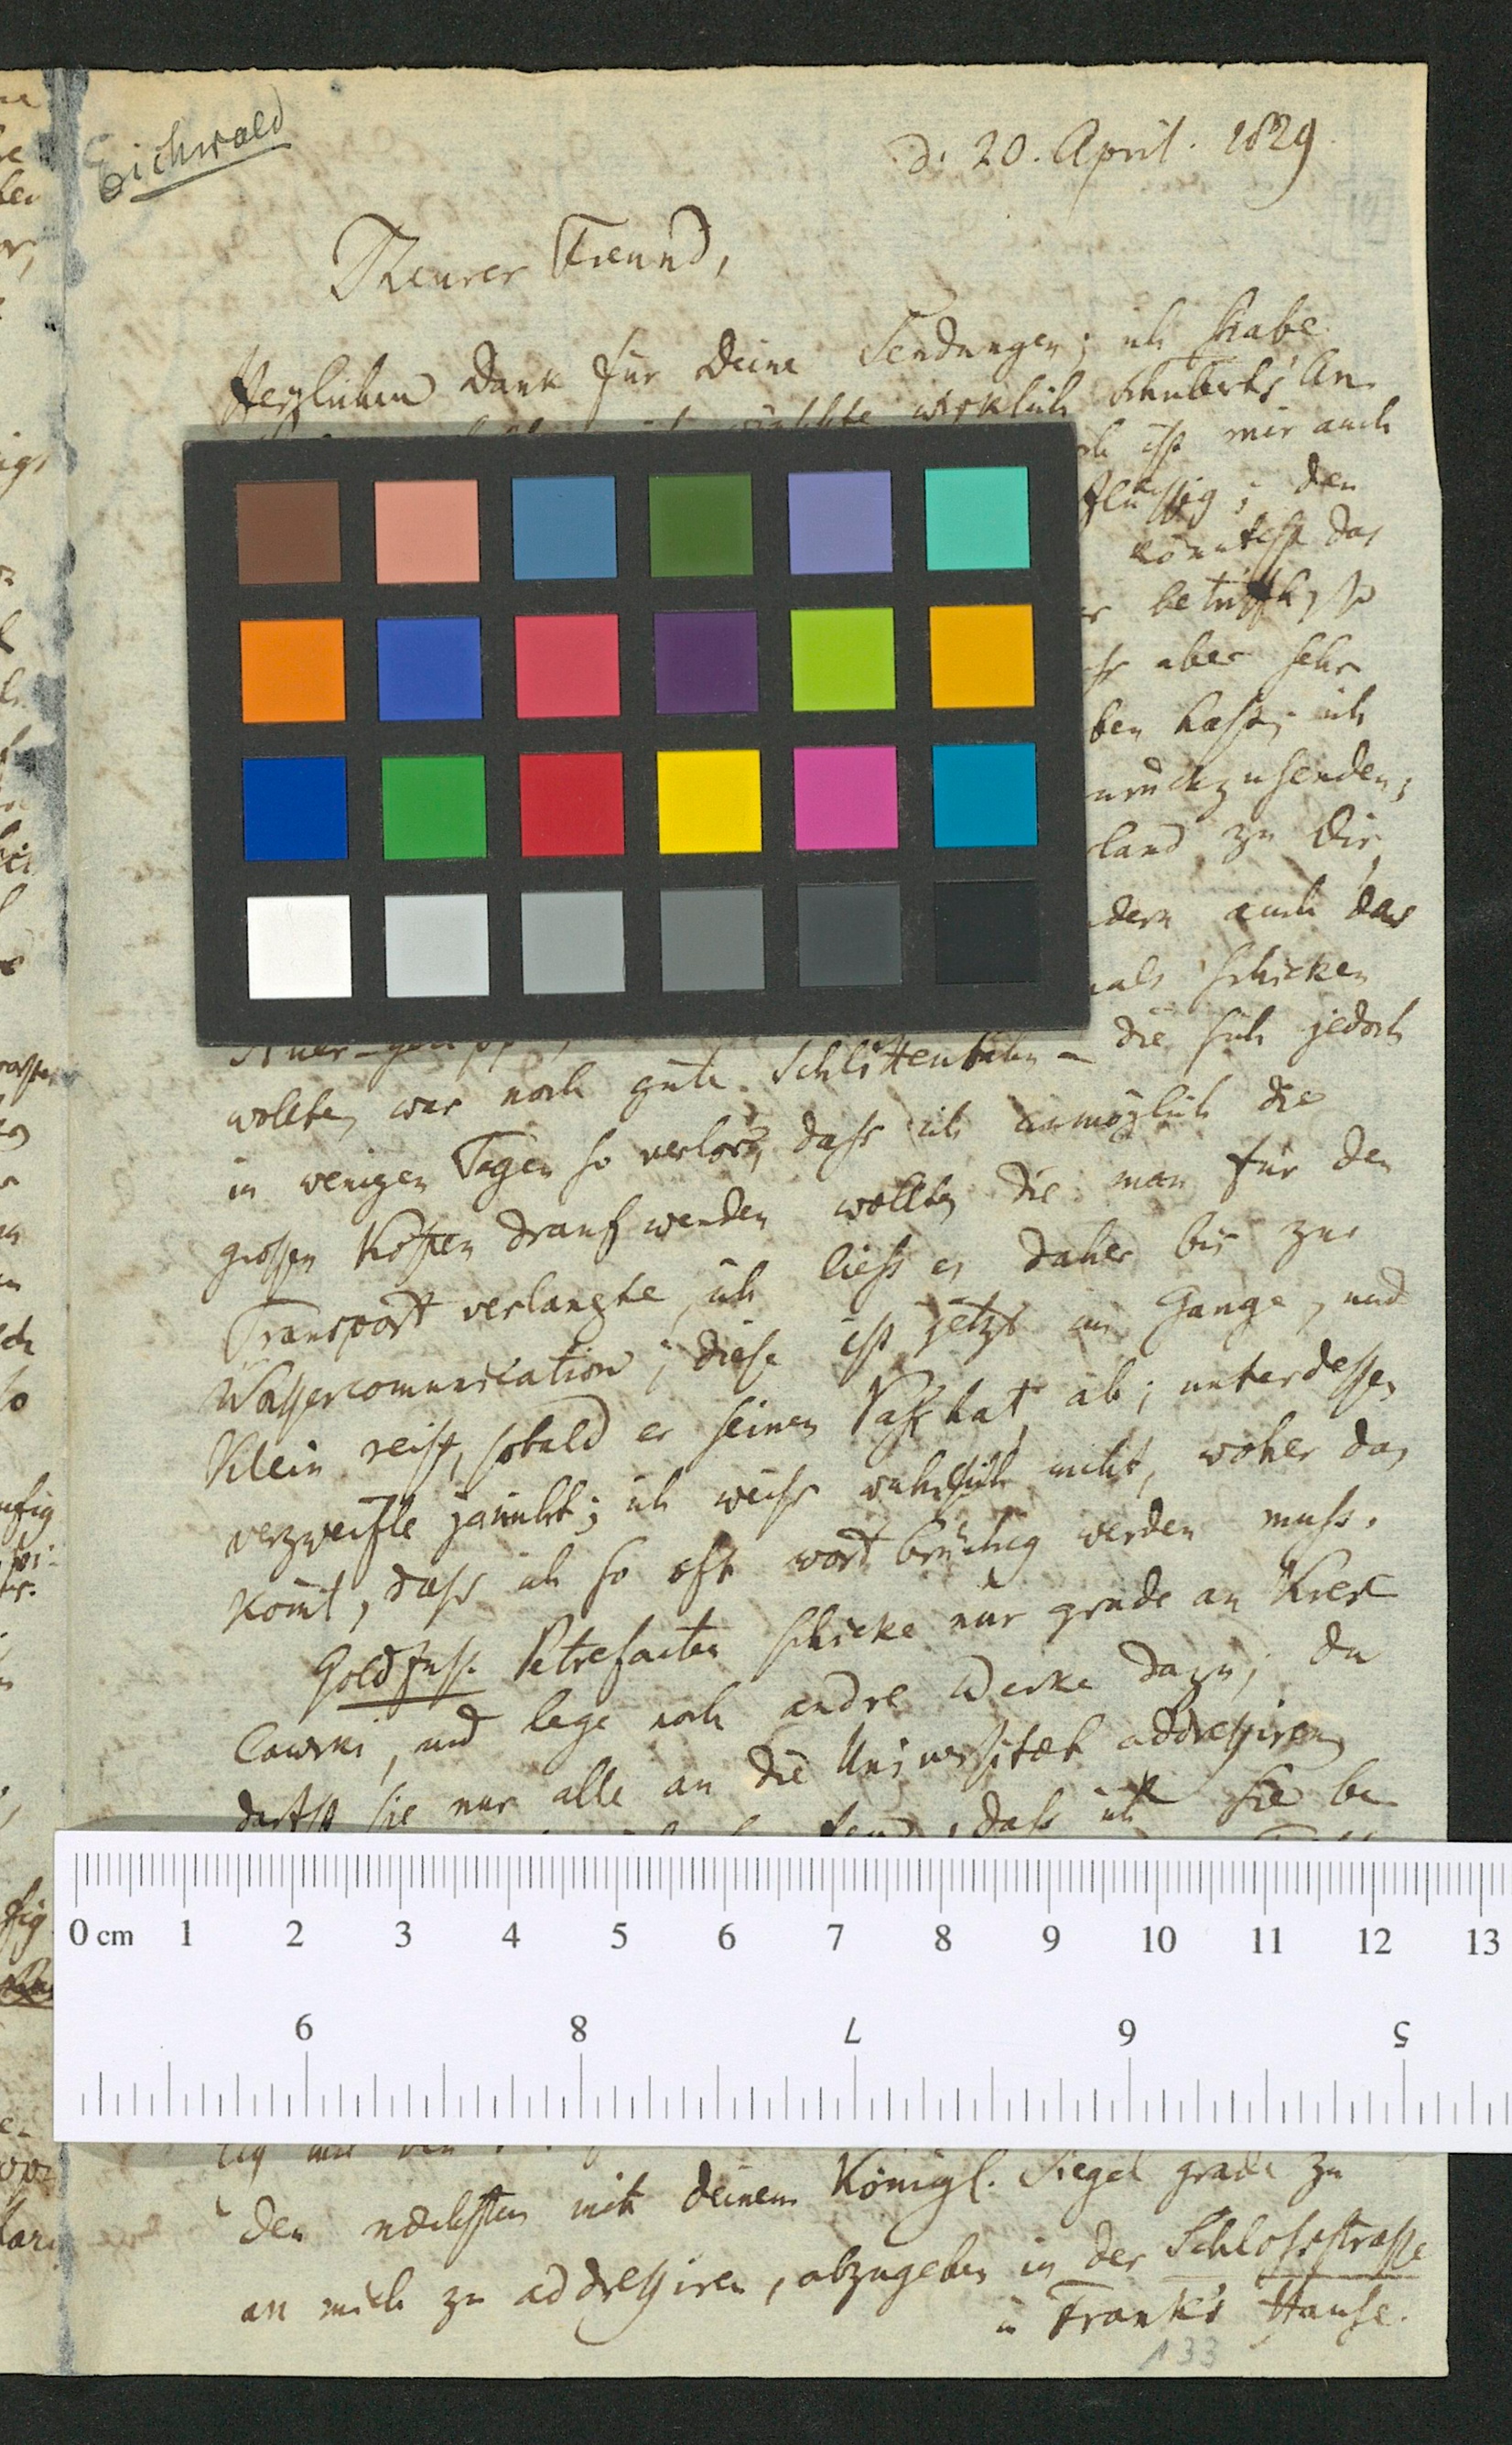 Eichwald
d. 20. April. 1829.
Theurer Freund,
Herzlichen Dank für Deine Sendungen; ich habe
wirklich Schuberts An-
ist mir auch
flüssig; den
könntest das
betrifft, so
aber sehr
ben hast; ich
zurückzusenden;
land zu Dir,
dern auch das
mals schicken
wollte, war noch gute Schlittenbahn – die sich jedoch
in wenigen Tagen so verlor, dass ich unmöglich die
grossen Kosten drauf wenden wollte, die man für den
Transport verlangte, ich liess es daher bis zur
Wassercommunication; diese ist jetzt im Gange, und
Klein reist, sobald er seinen Pass hat, ab; unterdessen
verzweifle ja nicht; ich weiss wahrlich nicht, woher das
komt, dass ich so oft wortbrüchig werden muss.
Goldfuss Petrefacten schicke nur grade an Kres
lawski, und lege noch andre Werke dazu; du
darfst sie nur alle an die Universitæt addressiren,
dass ich sie be
den nächsten mit deinem Königl. Siegel grade zu
an mich zu addressiren, abzugeben in der Schlossstrasse
in Frank's Hause.
133
0 cm 1 2 3 4 5 6 7 8 9 10 11 12 13
9 8 7 6 5